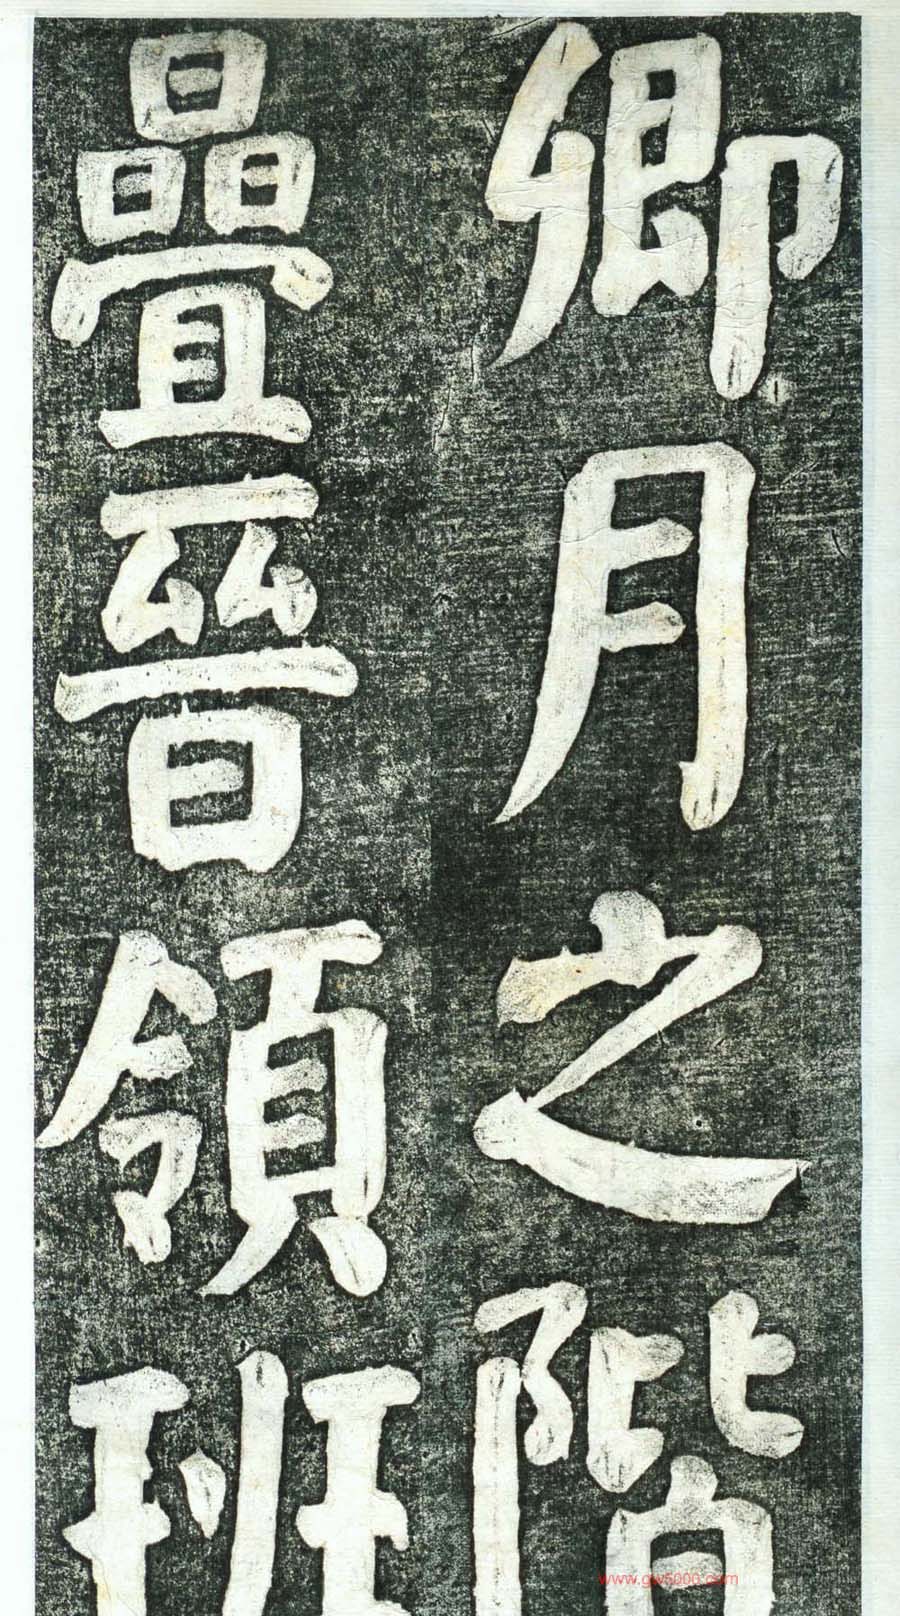 卿月之階
疊晉領班
www.gw5000.com